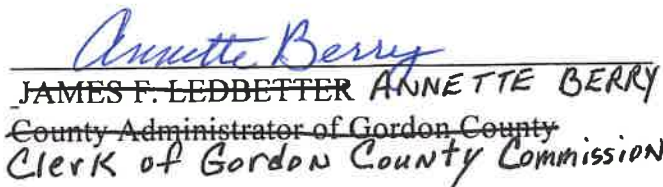 Annette Berry
JAMES F. LEDBETTER ANNETTE BERRY
County Administrator of Gordon County
Clerk of Gordon County Commission